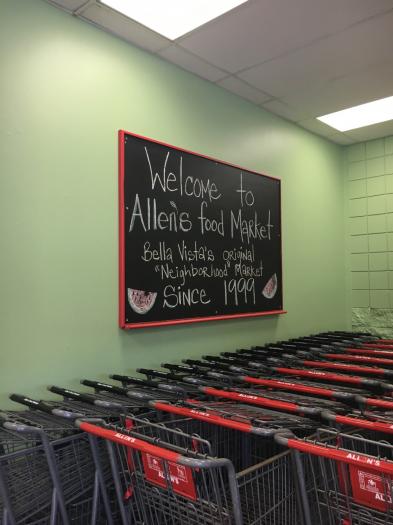 Welcome to
Allen's food Market
Bella Vista's original
"Neighborhood" Market
Since 1999
ALLEN'S
ALLEN'S
ALLEN'S